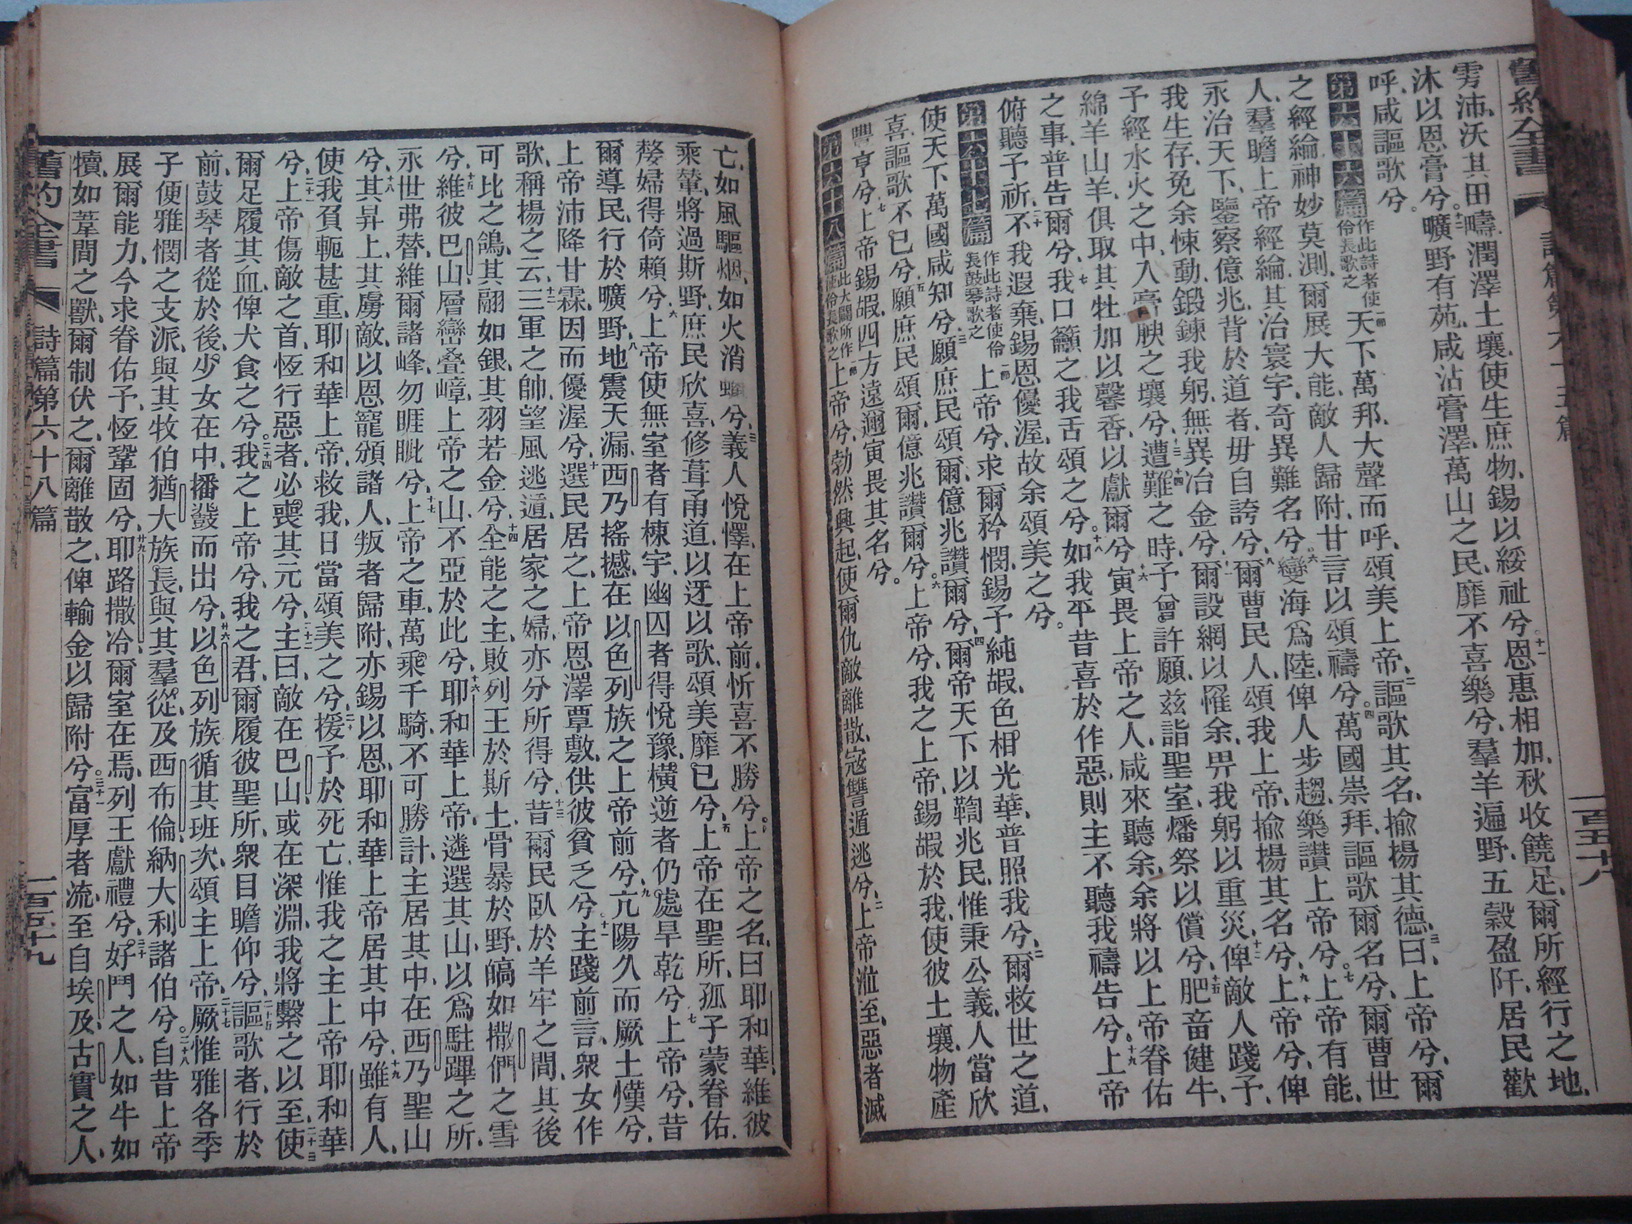 舊約全書 詩篇第六十五篇 一百五十八
雱沛、沃其田疇、潤澤土壤、使生庶物、錫以綏祉兮、十一恩惠相加、秋收饒足、爾所經行之地、
沐以恩膏兮、十二曠野有苑、咸沾膏澤、萬山之民、靡不喜樂兮、羣羊遍野、五穀盈阡、居民歡
呼、咸謳歌兮。
第六十六篇 作此詩者使伶長歌之 一節天下萬邦、大聲而呼、頌美上帝、二謳歌其名、揄揚其德、三曰上帝兮、爾
之經綸、神妙莫測、爾展大能、敵人歸附、甘言以頌禱兮。四萬國崇拜、謳歌爾名兮、爾曹世
人、羣瞻上帝、經綸其治、寰宇奇異難名兮、六變海爲陸、俾人步趨、樂讚上帝兮。七上帝有能、
永治天下、鑒察億兆、背於道者、毋自誇兮、八爾曹民人、頌我上帝、揄揚其名兮、九上帝兮、俾
我生存、免余悚動、十鍛鍊我躬、無異冶金兮、十一爾設網以罹余、畀我躬以重災、十二俾敵人踐予、
予經水火之中、入膏腴之壤兮、十三十四遭難之時、予曾許願、茲詣聖室、燔祭以償兮、十五肥畜健牛、
綿羊山羊、俱取其牡、加以馨香、以獻爾兮、十六寅畏上帝之人、咸來聽余、余將以上帝眷佑
之事、普告爾兮、十七我口籲之、我舌頌之兮。十八如我平昔喜於作惡、則主不聽我禱告兮、十九上帝
俯聽予祈、二十不我遐棄、錫恩優渥、故余頌美之兮。
第六十七篇 作此詩者使伶長鼓琴歌之 一節上帝兮、求爾矜憫、錫予純嘏、色相光華、普照我兮、二爾救世之道、
使天下萬國咸知兮、三願庶民頌爾、億兆讚爾兮、四爾帝天下、以鞫兆民、惟秉公義、人當欣
喜、謳歌不已兮、五願庶民頌爾、億兆讚爾兮。六上帝兮、我之上帝、錫嘏於我、使彼土壤、物產
豐亨兮、七上帝錫嘏、四方遠邇、寅畏其名兮。
第六十八篇 此大闢所作使伶長歌之 一節上帝兮、勃然興起、使爾仇敵離散、寇讐遁逃兮、二上帝涖至、惡者滅
亡、如風驅烟、如火消蠟兮、三義人悅懌、在上帝前、忻喜不勝兮。四上帝之名、曰耶和華、維彼
乘輦、將過斯野、庶民欣喜、修葺甬道、以迓以歌、頌美靡已兮、五上帝在聖所、孤子蒙眷佑、
嫠婦得倚賴兮、六上帝使無室者有棟宇、幽囚者得悅豫、橫逆者仍處旱乾兮、七上帝兮、昔
爾導民、行於曠野、八地震天漏、西乃搖撼、在以色列族之上帝前兮、九亢陽久而厥土熯兮、
上帝沛降甘霖、因而優渥兮、十選民居之、上帝恩澤覃敷、供彼貧乏兮、十一主踐前言、衆女作
歌、稱揚之云、十二三軍之帥、望風逃遁、居家之婦、亦分所得兮、十三昔爾民臥於羊牢之間、其後
可比之鴿、其翮如銀、其羽若金兮、十四全能之主、敗列王於斯土、骨暴於野、皜如撒們之雪
兮、十五維彼巴山、層巒叠嶂、上帝之山、不亞於此兮、十六耶和華上帝、遴選其山、以爲駐蹕之所、
永世弗替、維爾諸峰、勿睚眦兮、十七上帝之車、萬乘千騎、不可勝計、主居其中、在西乃聖山
兮、十八其昇上、其虜敵、以恩寵頒諸人、叛者歸附、亦錫以恩、耶和華上帝居其中兮、十九雖有人、
使我負軛甚重、耶和華上帝救我、日當頌美之兮、二十援予於死亡、惟我之主上帝耶和華
兮、二十一上帝傷敵之首、恆行惡者、必喪其元兮、二十二主曰敵在巴山、或在深淵、我將繫之以至、二十三使
爾足履其血、俾犬食之兮、二十四我之上帝兮、我之君、爾履彼聖所、衆目瞻仰兮、二十五謳歌者行於
前、鼓琴者從於後、少女在中、播鼗而出兮、廿六以色列族、循其班次、頌主上帝、二十七厥惟雅各季
子便雅憫之支派、與其牧伯、猶大族長、與其羣從、及西布倫、納大利諸伯兮。二十八自昔上帝
展爾能力、今求眷佑予、恆鞏固兮、廿九耶路撒冷、爾室在焉、列王獻禮兮、三十好鬥之人、如牛如
犢、如葦間之獸、爾制伏之、爾離散之、俾輸金以歸附兮。三十一富厚者流、至自埃及、古實之人、
舊約全書 詩篇第六十八篇 一百五十九